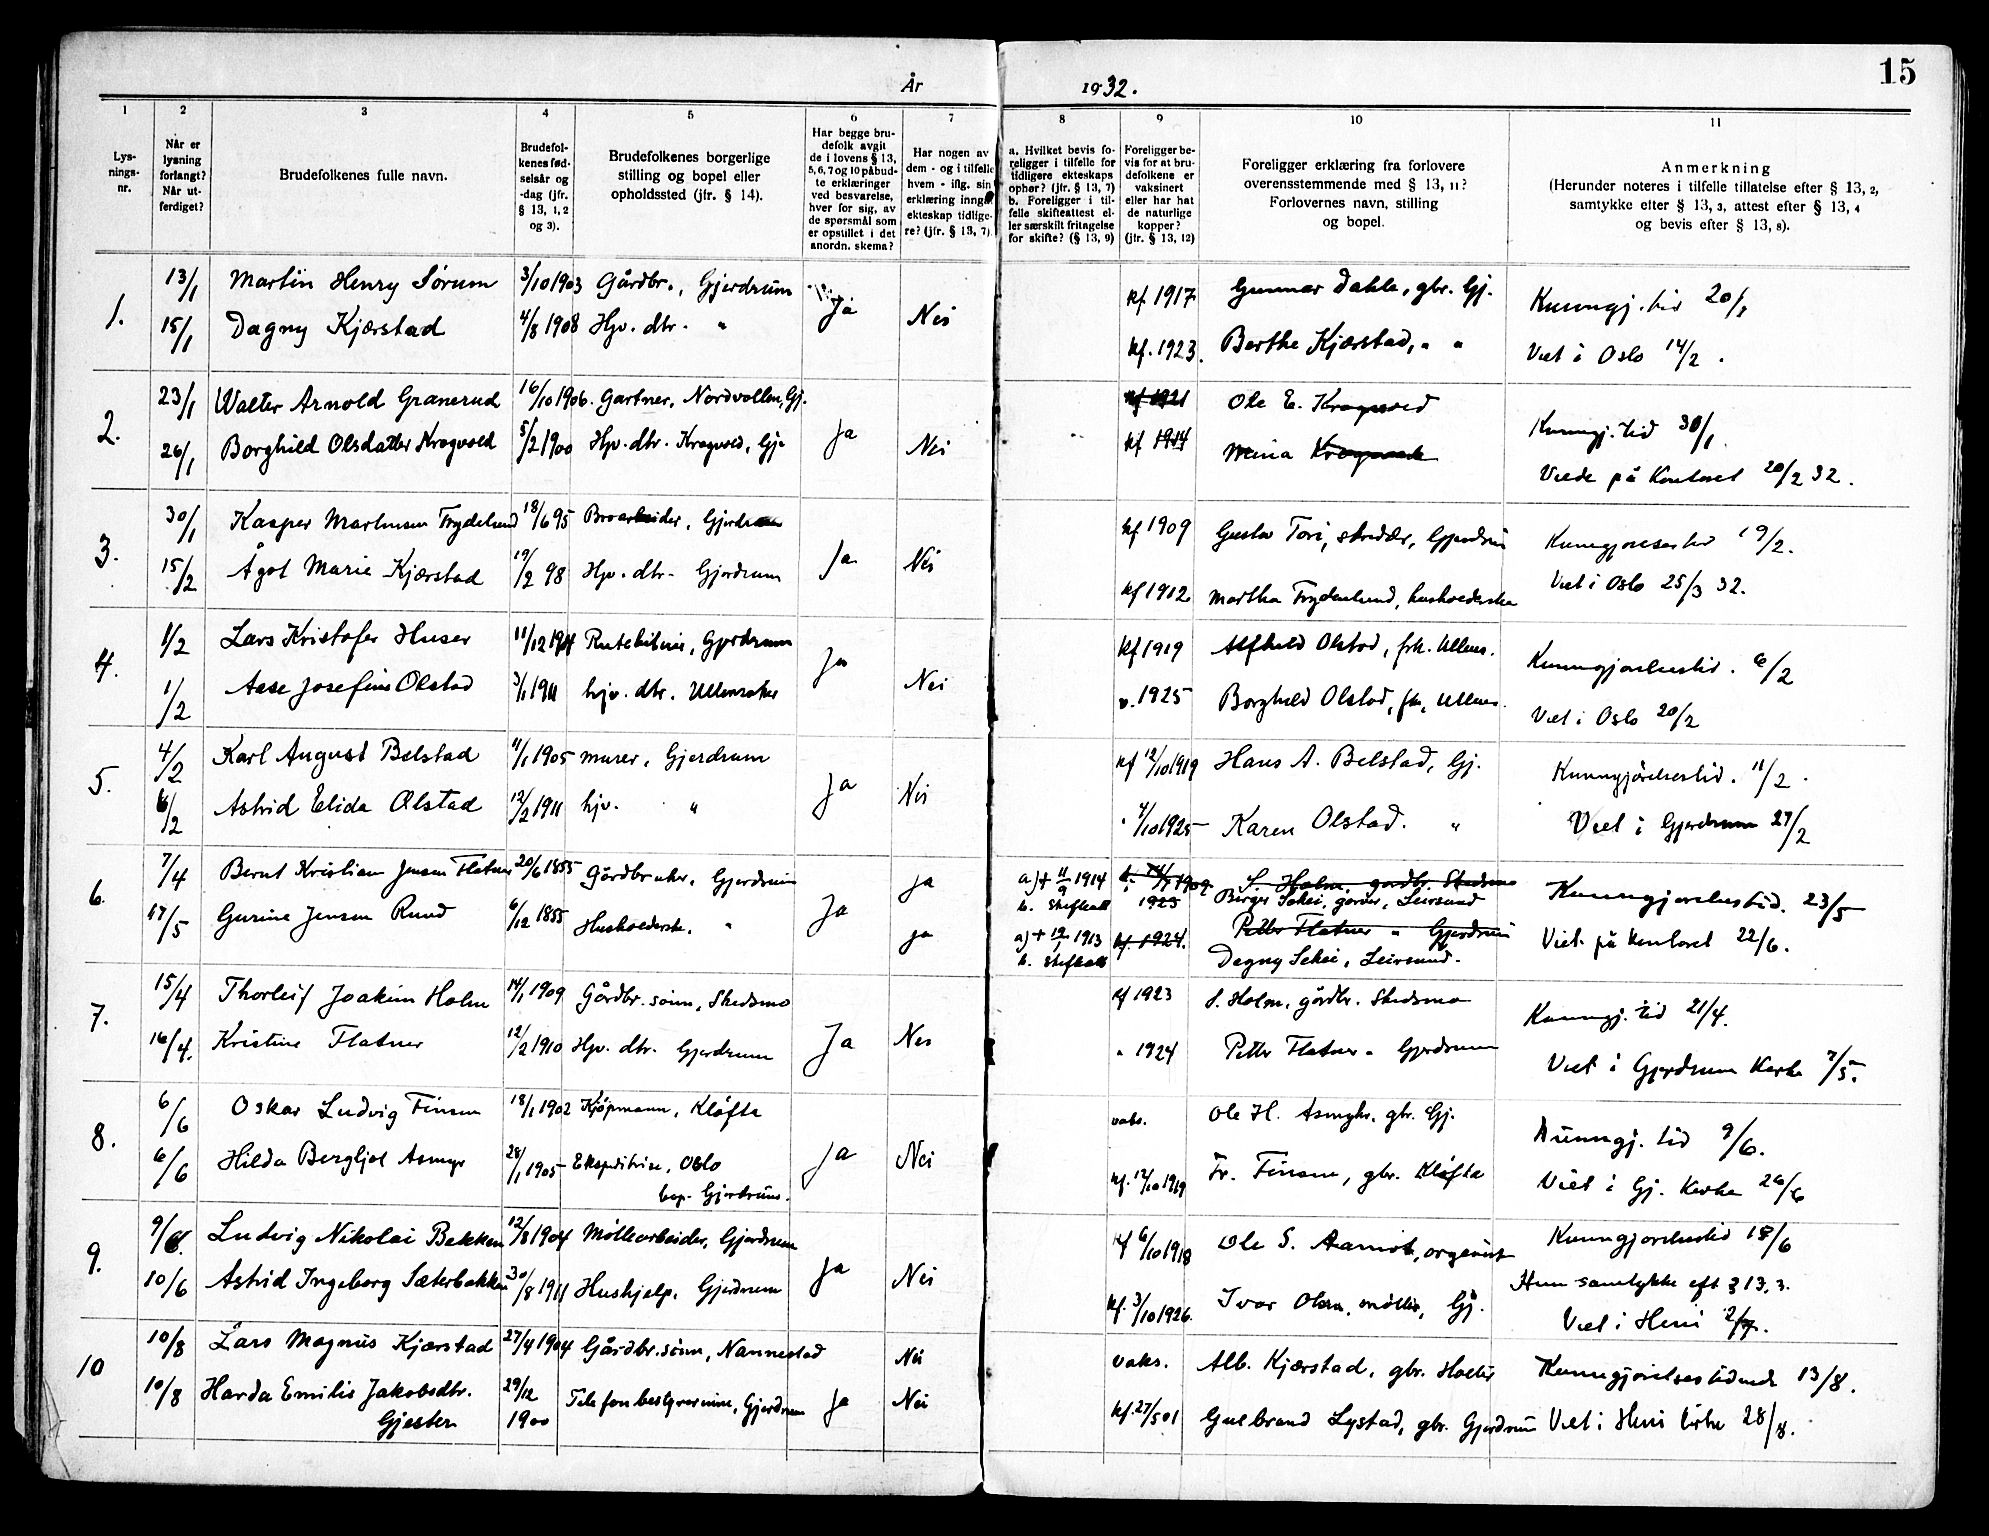 15
År 1932.
1 2 3 4 5 6 7 8 9 10 11
Lys-
nings-
nr.
Når er
lysning
forlangt?
Når ut-
ferdiget?
Brudefolkenes fulle navn.
Brudefol-
kenes fød-
selsår og
-dag (jfr.
§ 13, 1, 2
og 3).
Brudefolkenes borgerlige
stilling og bopel eller
opholdssted (jfr. § 14).
Har begge bru-
defolk avgit
de i lovens § 13,
5, 6, 7 og 10 påbud-
te erklæringer
ved besvarelse,
hver for sig, av
de spørsmål som
er opstillet i det
anordn. skema?
Har nogen av
dem - og i tilfelle
hvem - iflg. sin
erklæring inngått
ekteskap tidlige-
re? (jfr. § 13, 7)
a. Hvilket bevis fo-
religger i tilfelle for
tidligere ekteskaps
ophør? (jfr. § 13, 7)
b. Foreligger i til-
felle skifteattest el-
ler særskilt fritagelse
for skifte? (§ 13, 9)
Foreligger be-
vis for at bru-
defolkene er
vaksinert
eller har hat
de naturlige
kopper?
(jfr. § 13, 12)
Foreligger erklæring fra forlovere
overensstemmende med § 13, 11?
Forlovernes navn, stilling
og bopel.
Anmerkning
(Herunder noteres i tilfelle tillatelse efter § 13, 2,
samtykke efter § 13, 3, attest efter § 13, 4
og bevis efter § 13, 8).
1. 13/1 Martin Henry Sørum 3/10 1903 Gårdbr., Gjerdrum Ja Nei kf. 1917 Gunnar Dahle, gbr. Gj. Kunngj. tid 20/1
15/1 Dagny Kjærstad 4/8 1908 Hjv. dtr. " kf. 1923. Berthe Kjærstad, " " Viet i Oslo 14/2.
2. 23/1 Walter Arnold Granerud 16/10 1906. Gartner, Nordvollen, Gj. Ja Nei kf 1921 Ole E. Krogvold Kunngj. tid 30/1.
26/1 Borghild Olsdatter Krogvold 5/2 1900 Hjv. dtr. Krogvold, Gj. kf 1914 Mina Krogvold Viede på Kontoret 20/2 32.
3. 30/1 Kasper Martinsen Frydenlund 18/6 95 Broarbeider, Gjerdrum Ja Nei kf 1909 Gustav Tori, skredder, Gjerdrum Kunngjørelsestid 19/2.
15/2 Ågot Marie Kjærstad 19/2 98 Hjv. dtr. Gjerdrum kf 1912 Martha Frydenlund, husholderske Viet i Oslo 25/3 32.
4. 1/2 Lars Kristofer Huser 11/12 Rutebileier, Gjerdrum Ja Nei kf 1919 Alfhild Olstad, frk. Ullens. Kunngjørelsestid. 6/2
1/2 Aase Josefine Olstad 3/1 1911 hjv. dtr. Ullensaker v. 1925 Borghild Olstad, frk, Ullens. Viet i Oslo 20/2
5. 4/2 Karl August Belstad 11/1 1905 murer, Gjerdrum Ja Nei kf 12/10 1919 Hans A. Belstad, Gj. Kunngjørelsestid. 11/2.
6/2 Astrid Elida Olstad 12/2 1911 hjv. " " 4/10 1925 Karen Olstad. " Viet i Gjerdrum 27/2
6. 7/4 Bernt Kristian Jensen Flatner 20/6 1855 Gårdbruker, Gjerdrum Ja ja a) + 11/9 1914 1909 S. Holm, gårdbr. Skedsmo Kunngjørelsestid. 23/5
b. Skifteatt 1923 Birger Sekei, Leirsund
17/5 Gurine Jensen Ruud 6/12 1855 Husholdersk. " ja a) + 19/1 1913 kf. 1924. Petter Flatner " Gjerdrum Viet på kontoret 22/6.
b. Skifteatt Dagny Sekei, Leirsund.
7. 15/4 Thorleif Joakim Holm 14/1 1909 Gårdbr. sønn, Skedsmo Ja Nei kf 1923 S. Holm, gårdbr. Skedsmo Kunngj. tid 21/4.
16/4. Kristine Flatner 12/2 1910 Hjv. dtr. Gjerdrum " 1924 Petter Flatner " Gjerdrum Viet i Gjerdrum Kirke 7/5.
8. 6/6 Oskar Ludvig Finsen 18/1 1902 Kjøpmann, Kløfta Ja Nei vaks. Ole H. Asmyhr. gbr. Gj. Kunngj. tid 9/6.
6/6 Hilda Bergljot Asmyr 28/1 1905 Ekspeditrise, Oslo kf. 12/10 1919 Fr. Finsen, gbr. Kløfta Viet i Gj. Kirke 26/6
bop. Gjerdrum.
9. 9/6. Ludvig Nikolai Bakken 12/8 1904 Møllearbeider, Gjerdrum Ja Nei kf 6/10 1918 Ole S. Aamot, organist Kunngjørelsestid 18/6
10/6 Astrid Ingeborg Sæterbakken 30/8 1911 Hushjelp, Gjerdrum kf. 3/10 1926. Ivar Olsen, møller, Gj. Hun samtykke eft § 13, 3.
Viet i Heni 2/7.
10 10/8 Lars Magnus Kjærstad 27/4 1904 Gårdbr. sønn, Nannestad Ja Nei vaks. Alb. Kjærstad, gbr. Holter Kunngjørelsestidende 13/8.
10/8 Harda Emilie Jakobsdtr. 29/12 1900 Telefonbestyrerinne, Gjerdrum Nei kf. 27/5 01 Gulbrand Lystad, gbr. Gjerdrum Viet i Heni kirke 28/8.
Gjesten